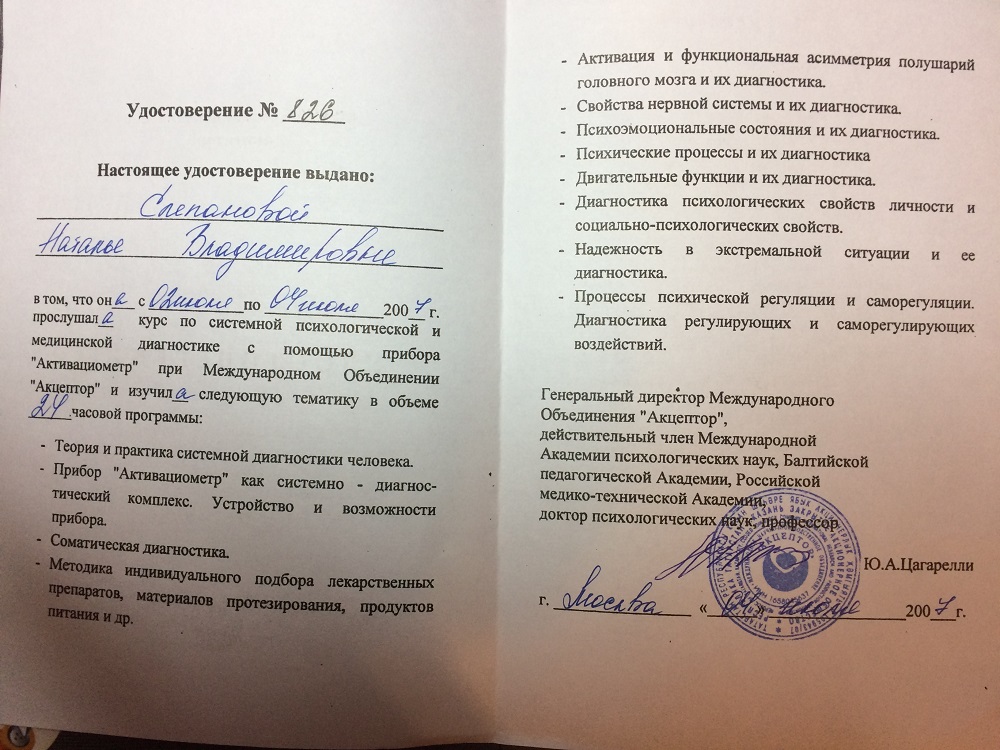 Удостоверение № 826
Настоящее удостоверение выдано:
Степановой
Наталье Владимировне
в том, что она с 02 июля по 04 июля 2007 г.
прослушала курс по системной психологической и
медицинской диагностике с помощью прибора
"Активациометр" при Международном Объединении
"Акцептор" и изучила следующую тематику в объеме
24 часовой программы:
- Теория и практика системной диагностики человека.
- Прибор "Активациометр" как системно - диагнос-
тический комплекс. Устройство и возможности
прибора.
- Соматическая диагностика.
- Методика индивидуального подбора лекарственных
препаратов, материалов протезирования, продуктов
питания и др.
- Активация и функциональная асимметрия полушарий
головного мозга и их диагностика.
- Свойства нервной системы и их диагностика.
- Психоэмоциональные состояния и их диагностика.
- Психические процессы и их диагностика
- Двигательные функции и их диагностика.
- Диагностика психологических свойств личности и
социально-психологических свойств.
- Надежность в экстремальной ситуации и ее
диагностика.
- Процессы психической регуляции и саморегуляции.
Диагностика регулирующих и саморегулирующих
воздействий.
Генеральный директор Международного
Объединения "Акцептор",
действительный член Международной
Академии психологических наук, Балтийской
педагогической Академии, Российской
медико-технической Академии,
доктор психологических наук, профессор
Ю.А.Цагарелли
г. Москва « 04 » июля 2007 г.
АКЦЕПТОР